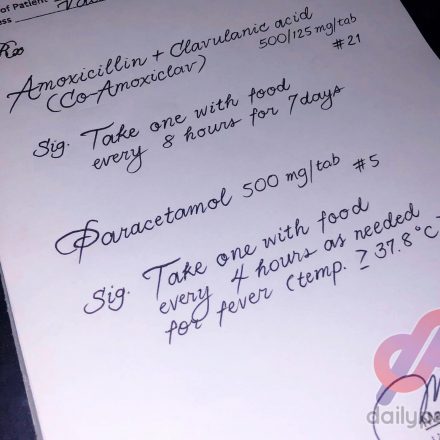 of Patient
ess
Rx
Amoxicillin + Clavulanic acid
(Co-Amoxiclav) 500/125 mg/tab
#21
Sig. Take one with food
every 8 hours for 7 days
Paracetamol 500 mg/tab #5
Sig. Take one with food
every 4 hours as needed
for fever (temp. ≥ 37.8°C
daily